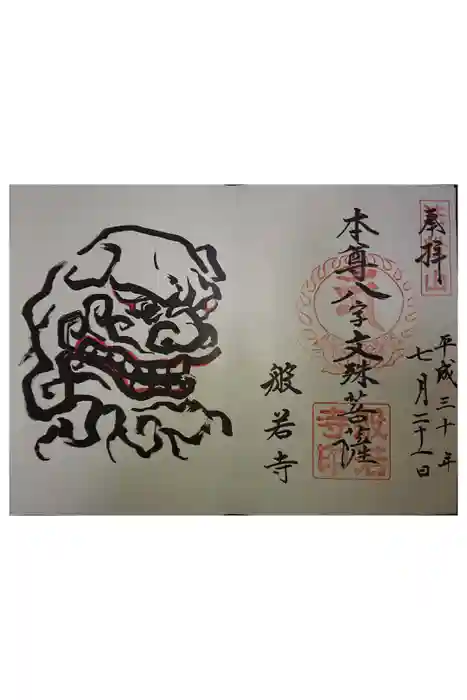 奉拝
平成三十年
七月二十一日
本尊八字文殊菩薩
般若寺
般若
寺印